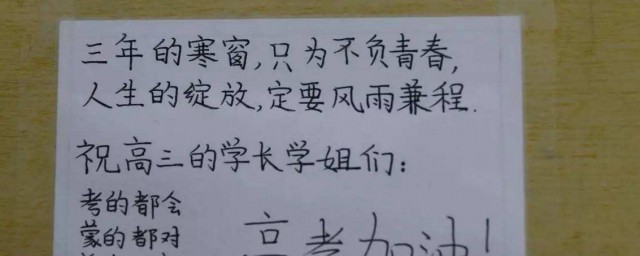 三年的寒窗,只为不负青春,
人生的绽放,定要风雨兼程.
祝高三的学长学姐们:
考的都会
蒙的都对
高考加油!